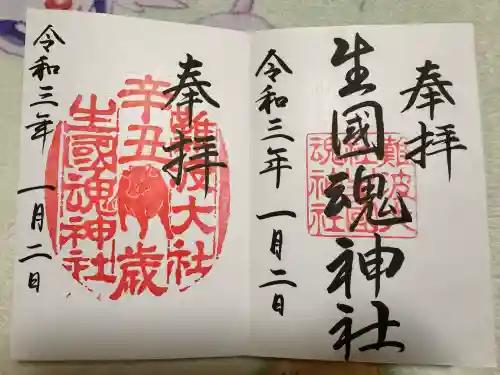 奉拝
生國魂神社
難波大社
生國魂神社
令和三年 一月二日
奉拝
難波大社
辛丑歳
生國魂神社
令和三年 一月二日